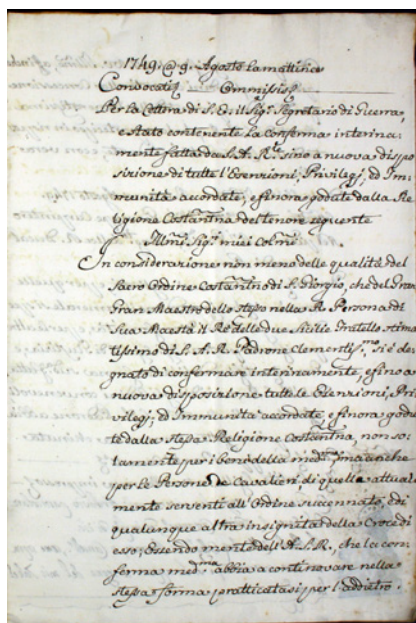 1749. @ 9. Agosto la mattina
Convocatis Ommissis
Per la Lettera di S. E. il Sig.r Segretario di Guerra,
e Stato contenente la Conferma interina-
mente fatta da S. A. R.le sino a nuova dispo-
sizione di tutte l'Esenzioni, Privilegj, ed Im-
munità accordate, e finora godute dalla Re-
ligione Costantna del tenore seguente
Illmi Sig.ri miei Colmi
In considerazione non meno delle qualità del
Sacro Ordine Costantno di S. Giorgio, che del Gran
Gran Maestro dello stesso nella R. Persona di
Sua Maestà il Re delle due Sicilie Fratello stima-
tissimo di S. A. R. Padrone Clementiss.mo, si è de-
gnato di confermare interinamente, e fino a
nuova disposizione tutte le Esenzioni, Pri-
vilegj, ed Immunità accordate, e finora godu-
te dalla stessa Religione Costantna, non so-
lamente per i beni della med.ma, ma anche
per le Persone de Cavalieri, di quelle attual-
mente serventi all'Ordine succennato, e di
qualunque altra insignita della Croce di
esso, Essendo mente dell'A. S. R., che la con-
ferma med.ma abbia a continovare nella
stessa forma pratticatasi per l'addietro.